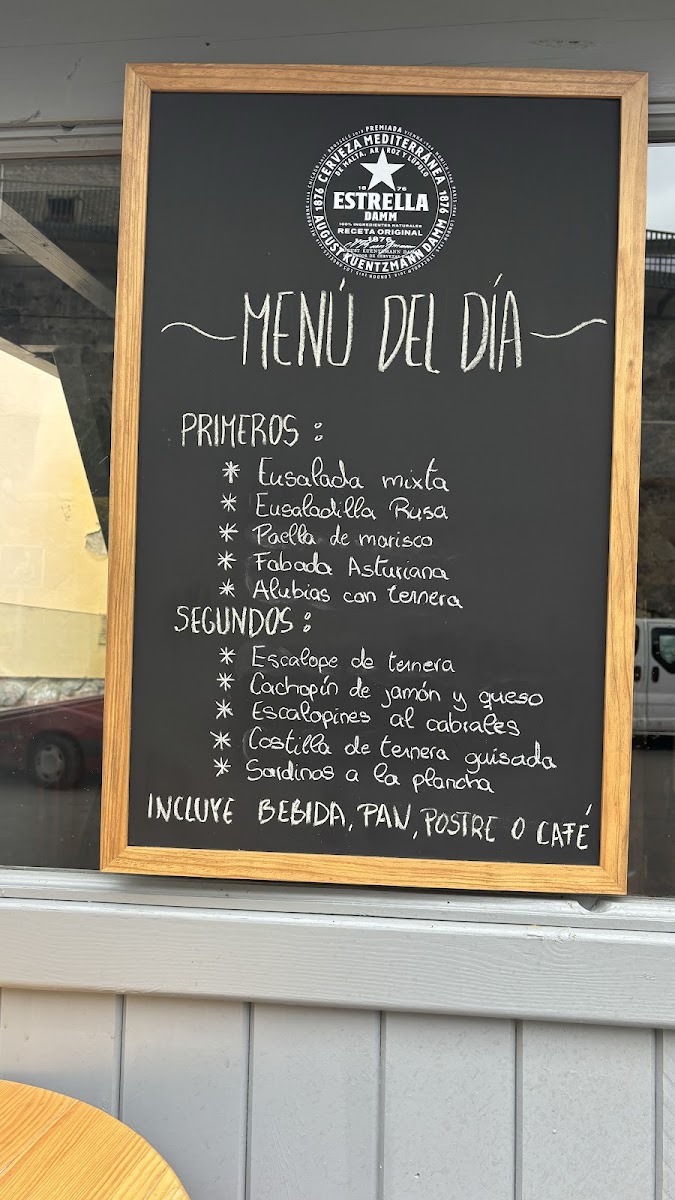 PREMIADA
CERVEZA MEDITERRÁNEA
DE MALTA, ARROZ Y LÚPULO
1876
1876
1876
ESTRELLA
DAMM
100% INGREDIENTES NATURALES
RECETA ORIGINAL
1876
AUGUST KUENTZMANN DAMM
MENÚ DEL DÍA
PRIMEROS:
* Ensalada mixta
* Ensaladilla Rusa
* Paella de marisco
* Fabada Asturiana
* Alubias con ternera
SEGUNDOS:
* Escalope de ternera
* Cachopín de jamón y queso
* Escalopines al cabrales
* Costilla de ternera guisada
* Sardinas a la plancha
INCLUYE BEBIDA, PAN, POSTRE O CAFÉ